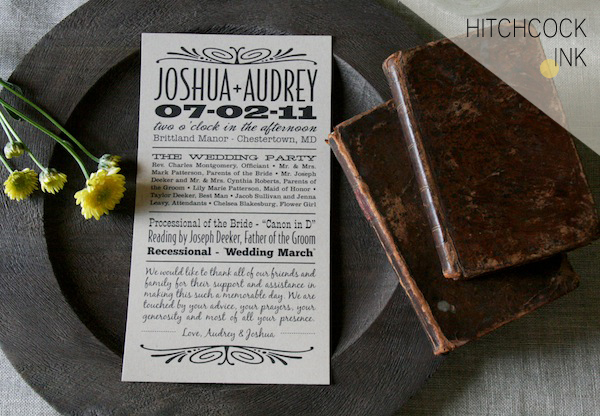 HITCHCOCK
INK
JOSHUA+AUDREY
07-02-11
two o'clock in the afternoon
Brittland Manor - Chestertown, MD
THE WEDDING PARTY
Rev. Charles Montgomery, Officiant • Mr. & Mrs.
Mark Patterson, Parents of the Bride • Mr. Joseph
Deeker and Mr. & Mrs. Cynthia Roberts, Parents of
the Groom • Lily Marie Patterson, Maid of Honor •
Taylor Deeker, Best Man • Jacob Sullivan and Jenna
Leavy, Attendants • Chelsea Blakesburg, Flower Girl
Processional of the Bride - "Canon in D"
Reading by Joseph Deeker, Father of the Groom
Recessional - "Wedding March"
We would like to thank all of our friends and
family for their support and assistance in
making this such a memorable day. We are
touched by your advice, your prayers, your
generosity and most of all your presence.
Love, Audrey & Joshua